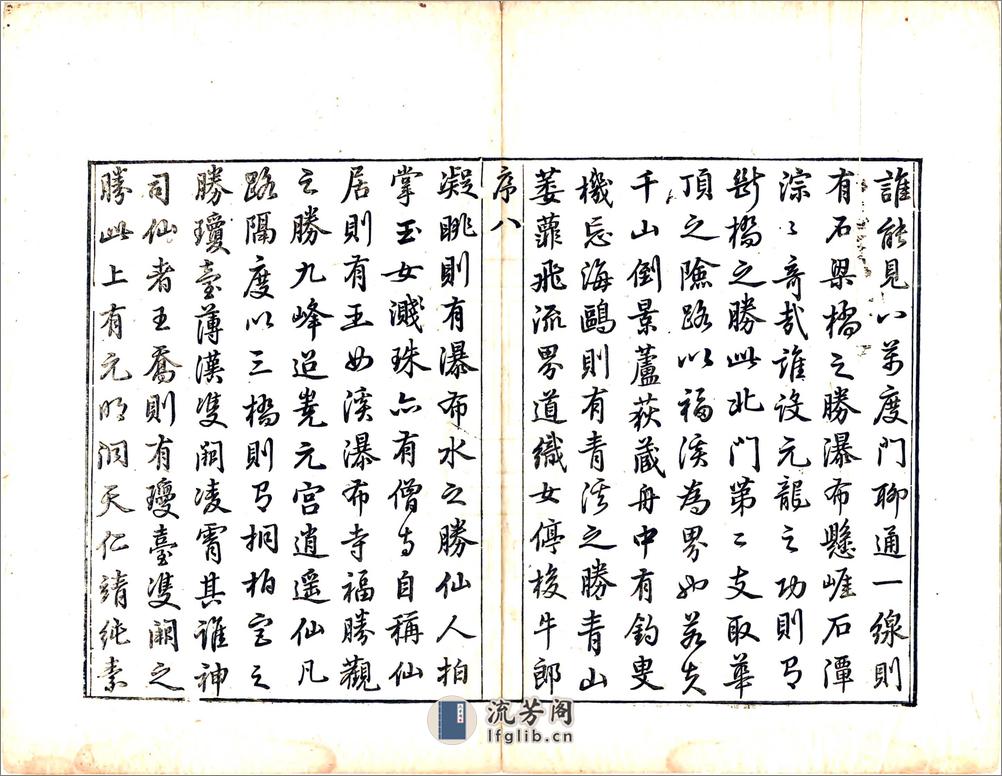 誰能見以茅度門聊通一線則
有石梁橋之勝瀑布懸崖石潭
淙〻奇哉誰設元龍之功則有
斷橋之勝此北門第二支取華
頂之險路以福溪為界如若夫
千山倒景蘆荻藏舟中有釣叟
機忘海鷗則有青溪之勝青山
萎蘿飛流界道織女停梭牛郎
序八
凝眺則有瀑布水之勝仙人拍
掌玉女濺珠亦有僧寺自稱仙
居則有王女溪瀑布寺福勝觀
之勝九峰迢嶤元宮逍遥仙凡
路隔度以三橋則有桐柏宮之
勝瓊臺薄漢雙闕凌霄其誰神
司仙者王喬則有瓊臺雙闕之
勝此上有元明洞天仁靖純素
流芳阁
lfglib.cn